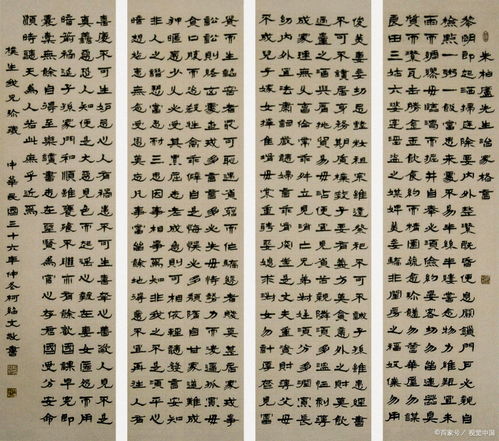 朱柏廬先生治家格言
黎明即起灑掃庭除要內外整潔既昏便息關鎖門戶必親自
檢點一粥一飯當思來處不易半絲半縷恆念物力維艱宜未
雨而綢繆毋臨渴而掘井自奉必須儉約宴客切勿留連器具
質而潔瓦缶勝金玉飲食約而精園蔬愈珍饈勿營華屋勿謀
良田三姑六婆實淫盜之媒婢美妾嬌非閨房之福奴僕勿用
俊美妻妾切忌豔粧祖宗雖遠祭祀不可不誠子孫雖愚經書
不可不讀居身務期質樸教子要有義方勿貪意外之財莫飲
過量之酒與肩挑貿易毋佔便宜見貧苦親鄰須加溫恤刻薄
成家理無久享倫常乖舛立見消亡兄弟叔姪須分多潤寡長
幼內外宜法肅辭嚴聽婦言乖骨肉豈是丈夫重貲財薄父母
不成人子嫁女擇佳婿毋索重聘娶媳求淑女勿計厚奩見富
貴而生諂容者最可恥遇貧窮而作驕態者賤莫甚居家戒爭
訟訟則終凶處世戒多言言多必失毋恃勢力而凌逼孤寡勿
貪口腹而恣殺生禽乖僻自是悔誤必多頹惰自甘家道難成
狎暱惡少久必受其累屈志老成急則可相依輕聽發言安知
非人之譖愬當忍耐三思因事相爭焉知非我之不是須平心
暗想施惠無念受恩莫忘凡事當留餘地得意不宜再往人有
喜慶不可生妒忌心人有禍患不可生喜幸心善欲人見不是
真善惡恐人知便是大惡見色而起淫心報在妻女匿怨而用
暗箭禍延子孫家門和順雖饔飧不繼亦有餘歡國課早完即
囊橐無餘自得至樂讀書志在聖賢為官心存君國守分安命
順時聽天為人若此庶乎近焉
樸生我兄珍藏 中華民國三十六年仲冬柯文敬書
©百家号/视觉中国